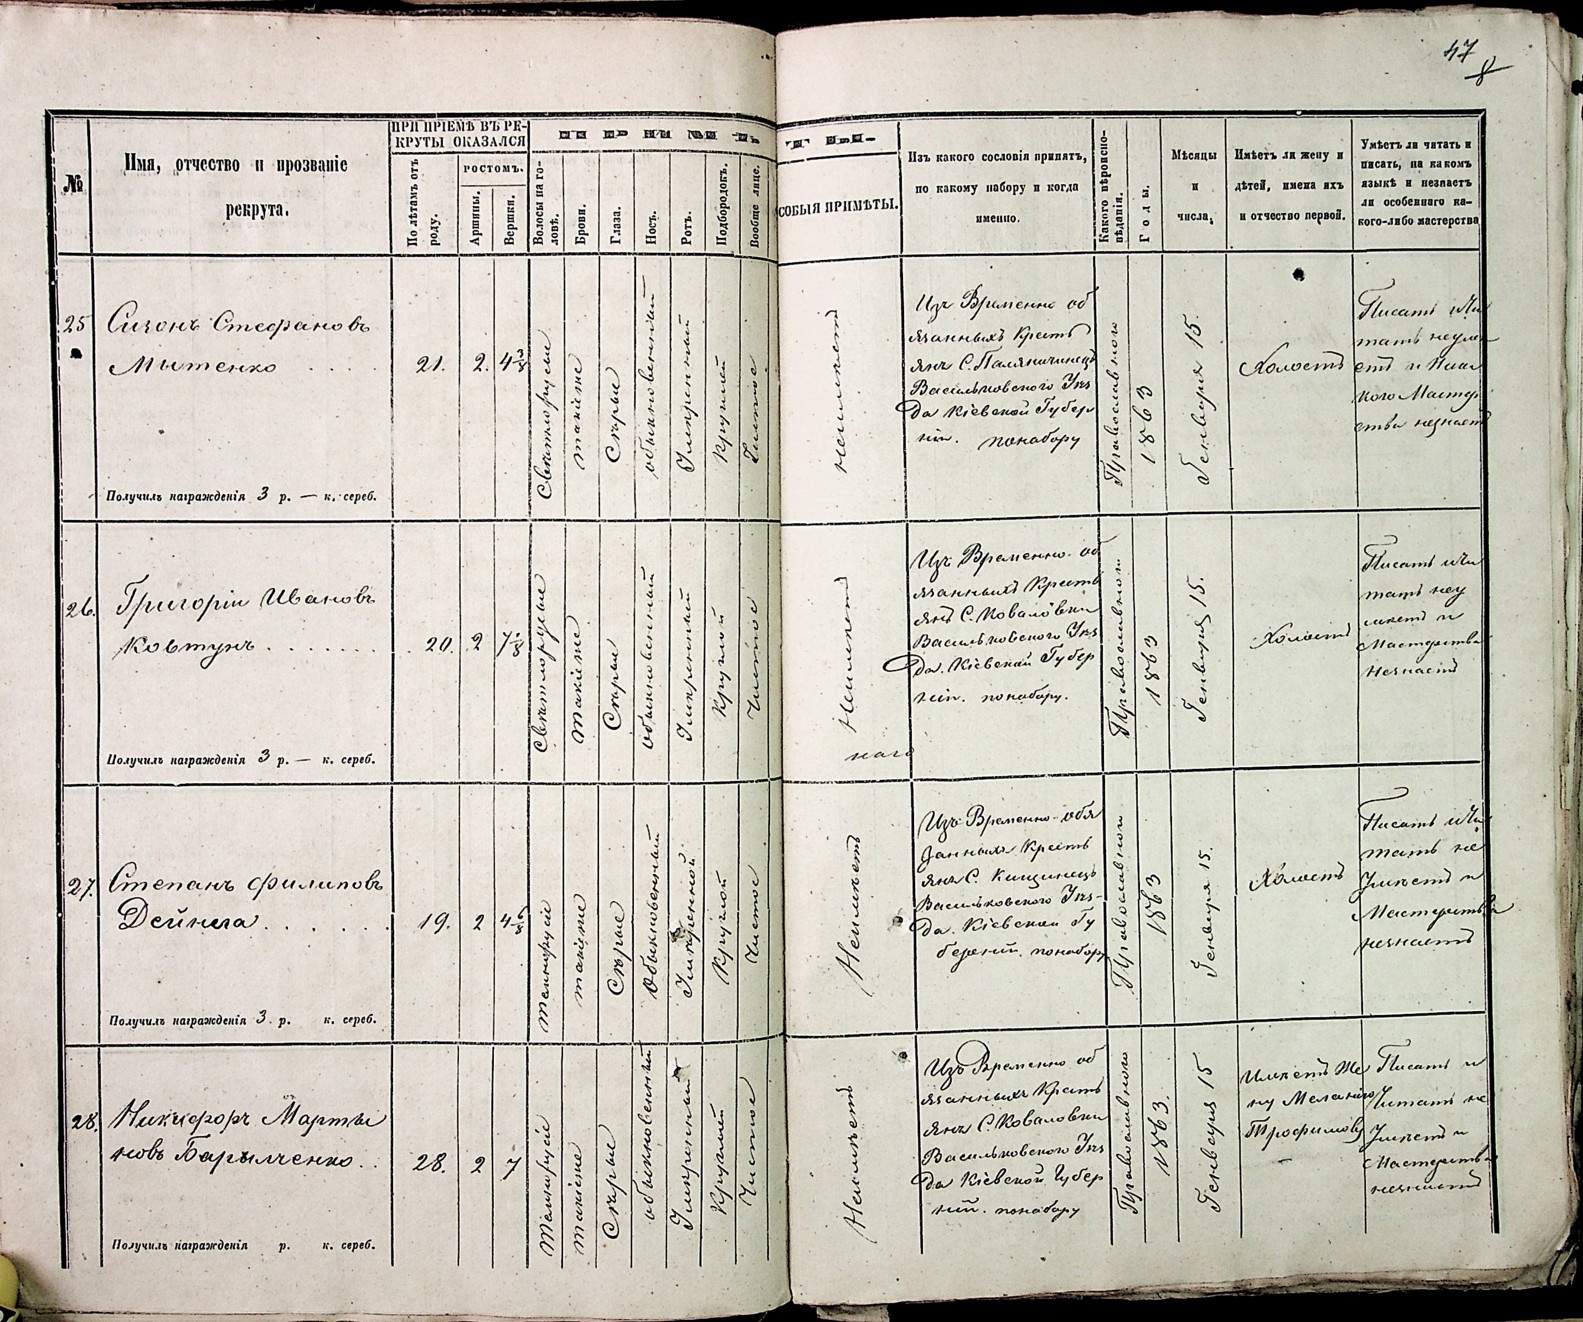 47
8
№
Имя, отчество и прозваніе
рекрута.
ПРИ ПРІЕМѢ ВЪ РЕ-
КРУТЫ ОКАЗАЛСЯ
По лѣтамъ отъ
роду.
РОСТОМЪ.
Аршины.
Вершки.
Волосы на го-
ловѣ.
Брови.
Глаза.
Носъ.
Ротъ.
Подбородокъ.
Вообще лице.
СОБЫЯ ПРИМѢТЫ.
Изъ какого сословія принятъ,
по какому набору и когда
именно.
Какого вѣроиспо-
вѣданія.
Годы.
Мѣсяцы
и
числа.
Имѣетъ ли жену и
дѣтей, имена ихъ
и отчество первой.
Умѣетъ ли читать и
писать, на какомъ
языкѣ и незнаетъ
ли особеннаго ка-
кого-либо мастерства
25
Сизонъ Стефановъ
Мытенко
21.
2.
4 3/8
Свѣтлорусые
такіеже
Сѣрые
обыкновенный
Умѣренный
Круглый
Чистое
неимѣетъ
Изъ Временно об
язанныхъ Кресть
янъ С. Паляничинецъ
Васильковскаго Уѣз
да Кіевской Губер
ніи. понабору
Православнаго
1863
Генваря 15.
Холостъ
Писать и Чи
тать неумѣ
етъ и Ника
кого Мастер
ства незнаетъ
Получилъ награжденія 3 р. — к. сереб.
26.
Григорій Ивановъ
Ковтунъ
20.
2
7
Свѣтлорусые
такіеже
Сѣрые
обыкновенный
Умѣренный
Круглой
Чистое
Неимѣетъ
Изъ Временно об
язанныхъ Кресть
янъ С. Ковалевки
Васильковскаго Уѣз
да Кіевской Губер
ніи. понабору.
Православнаго
1863
Генваря 15.
Холостъ
Писать и Чи
тать неу
мѣетъ и
Мастерства
Незнаетъ
Получилъ награжденія 3 р. — к. сереб.
27.
Степанъ Филиповъ
Дейнега
19.
2
4
Темнорусіе
такіеже
Сѣрые
Обыкновенный
Умѣренной
Круглой
Чистое
Неимѣетъ
Изъ Временно-обя
занныхъ Кресть
янъ С.
Васильковскаго Уѣз-
да. Кіевской Гу
берніи. понабору
Православнаго
1863
Генваря 15.
Холостъ
Писать и Чи
тать не
Умѣетъ и
Мастерства
незнаетъ
Получилъ награжденія 3 р. к. сереб.
28.
Никифоръ Марты
новъ Барылченко
28.
2
7
Темнорусіе
такіеже
Сѣрые
обыкновенный
Умѣренный
Круглый
Чистое
Неимѣетъ
Изъ Временно об
язанныхъ Кресть
янъ С. Ковалевки
Васильковскаго Уѣз
да Кіевской Губер
ніи. понабору
Православнаго
1863.
Генваря 15
Имѣетъ Же
ну Меланію
Трофимову
Писать и
Читать не
Умѣетъ и
Мастерства
незнаетъ
Получилъ награжденія р. к. сереб.